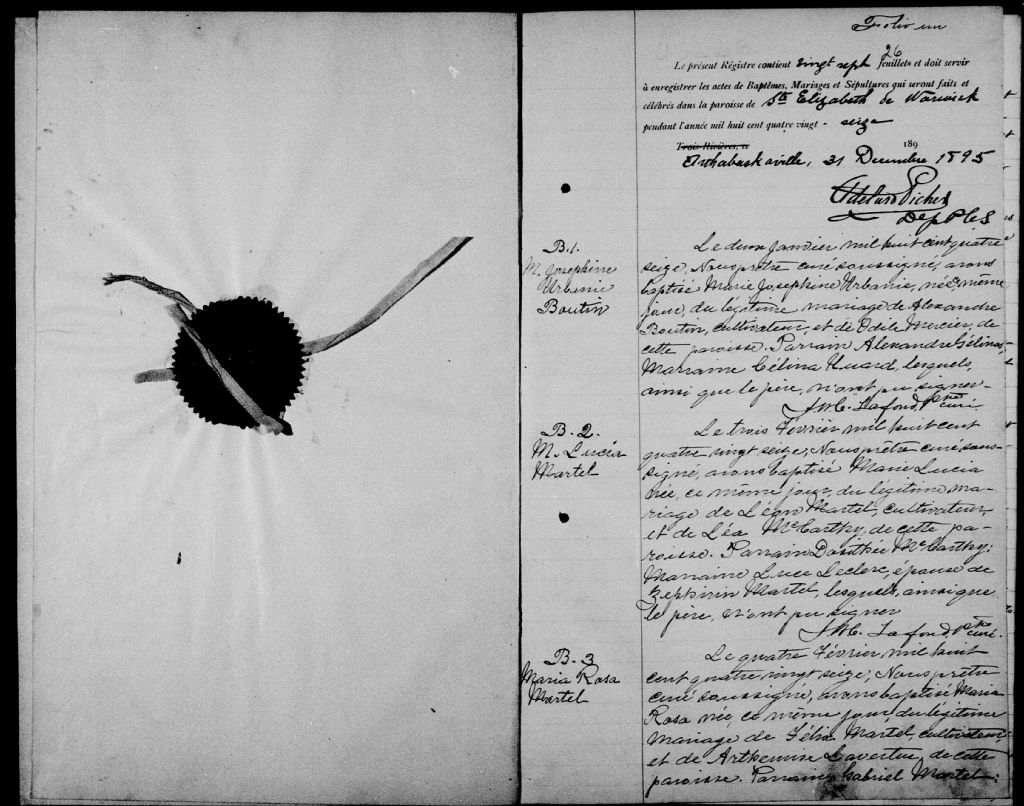 Folio un
Le présent Régistre contient vingt sept 26 feuillets et doit servir
à enregistrer les actes de Baptêmes, Mariages et Sépultures qui seront faits et
célébrés dans la paroisse de Ste Elizabeth de Warwick
pendant l'année mil huit cent quatre vingt - seize
Trois-Rivières, ce 189
Arthabaskaville, 31 Decembre 1895
Adelard Picher
Dep P C S
B. 1.
M. Josephine
Urbanie
Boutin
Le deux Janvier mil huit cent quatre
seize, Nous prêtre curé soussigné, avons
baptisé Marie Josephine Urbanie, née, même
jour, du légitime mariage de Alexandre
Boutin, cultivateur, et de Odile Mercier, de
cette paroisse. Parrain Alexandre Gélinas,
Marraine Célina Huard, lesquels,
ainsi que le père, n'ont pu signer.
Lafond, Ptre curé.
B. 2.
M. Lucia
Martel
Le trois Février mil huit cent
quatre vingt seize, Nous prêtre curé sous-
signé, avons baptisé Marie Lucia
née, ce même jour, du légitime ma-
riage de Léon Martel, cultivateur,
et de Léa McCarthy, de cette pa-
roisse. Parrain Dosithée McCarthy;
Marraine Luce Leclerc, épouse de
Zephirin Martel, lesquels, ainsi que
le père, n'ont pu signer
Lafond, Ptre curé.
B. 3
Maria Rosa
Martel
Le quatre Février mil huit
cent quatre vingt seize, Nous prêtre
curé soussigné, avons baptisé Maria
Rosa née, ce même jour, du légitime
Mariage de Félix Martel, cultivateur,
et de Arthemise Lavertue, de cette
paroisse. Parrain Gabriel Martel;